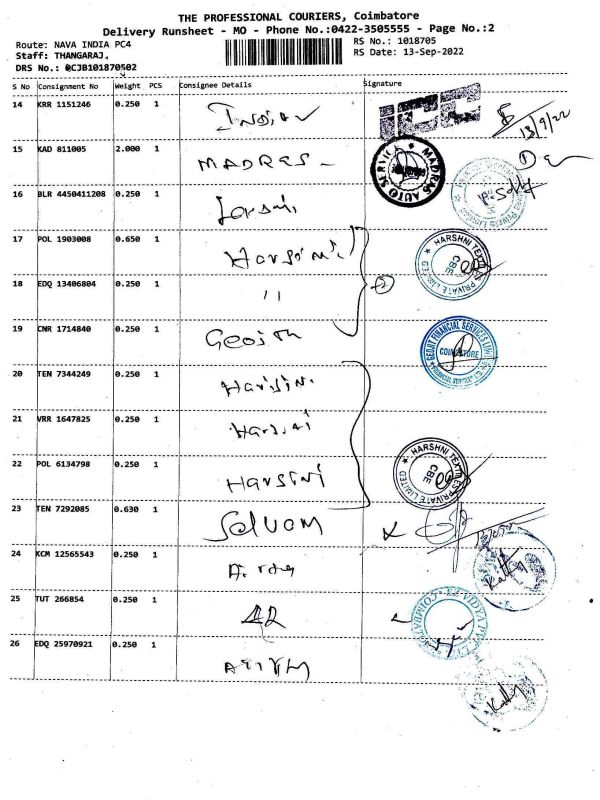 THE PROFESSIONAL COURIERS, Coimbatore
Delivery Runsheet - MO - Phone No.:0422-3505555 - Page No.:2
Route: NAVA INDIA PC4
RS No.: 1018705
Staff: THANGARAJ,
RS Date: 13-Sep-2022
DRS No.: @CJB101870502
S No Consignment No Weight PCS Consignee Details Signature
14 KRR 1151246 0.250 1 Indian ICE
13/9/22
15 KAD 811005 2.000 1 MADRES - MADRAS AUTO SERVICE
16 BLR 4450411208 0.250 1
17 POL 1903008 0.650 1 Harsini HARSHNI TEXTILES PRIVATE LIMITED CBE
18 EDQ 13406804 0.250 1 11 2
19 CNR 1714840 0.250 1 Geojith GEOJIT FINANCIAL SERVICES LIMITED COIMBATORE
20 TEN 7344249 0.250 1 Harsini
21 VRR 1647825 0.250 1 Harsini
22 POL 6134798 0.250 1 Harsini HARSHNI TEXTILES PRIVATE LIMITED CBE
23 TEN 7292085 0.630 1 Selvam
24 KCM 12565543 0.250 1
25 TUT 266854 0.250 1
26 EDQ 25970921 0.250 1